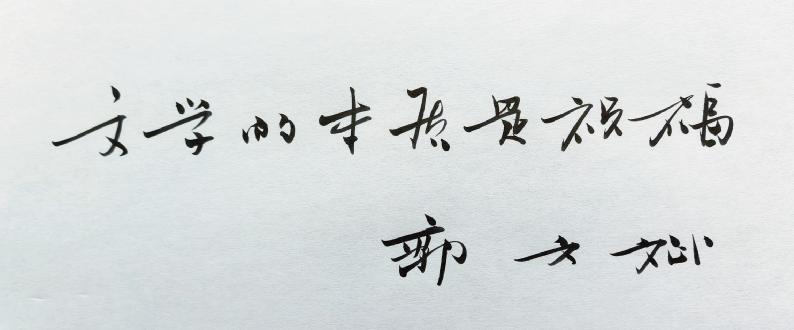 文学的本质是祝福
郭文斌